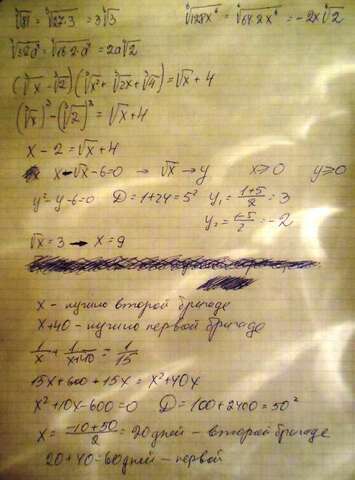 ∛81 = ∛27·3 = 3∛3 ⁶√128x⁶ = ⁶√64·2x⁶ = -2x⁶√2
∜32a⁴ = ∜16·2·a⁴ = 2a∜2
(∛x - ∛2)(∛x² + ∛2x + ∛4) = √x + 4
(∛x)³ - (∛2)³ = √x + 4
x - 2 = √x + 4
x - √x - 6 = 0 → √x → y x ≥ 0 y ≥ 0
y² - y - 6 = 0 D = 1 + 24 = 5² y₁ = (1+5)/2 = 3
y₂ = (1-5)/2 = -2
√x = 3 → x = 9
x - нужно второй бригаде
x+40 - нужно первой бригаде
1/x + 1/(x+40) = 1/15
15x + 600 + 15x = x² + 40x
x² + 10x - 600 = 0 D = 100 + 2400 = 50²
x = (-10+50)/2 = 20 дней - второй бригаде
20 + 40 = 60 дней - первой